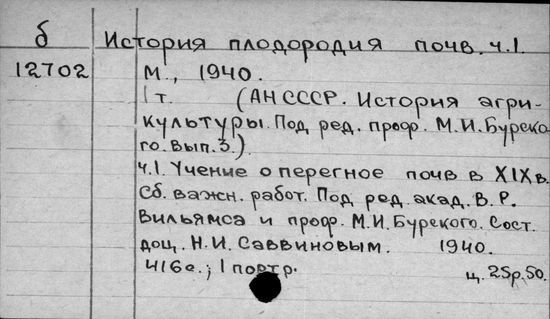 б История плодородия почв. ч.1.
12702 М., 1940.
1 т. (АН СССР. История агри-
культуры. Под ред. проф. М.И. Бурско-
го. Вып. 3.)
ч.1. Учение о перегное почв в XIX в.
Сб. важн. работ. Под ред. акад. В.Р.
Вильямса и проф. М.И. Бурского. Сост.
доц. Н.И. Саввиновым. 1940.
416с.; 1 портр. ц. 25р.50.